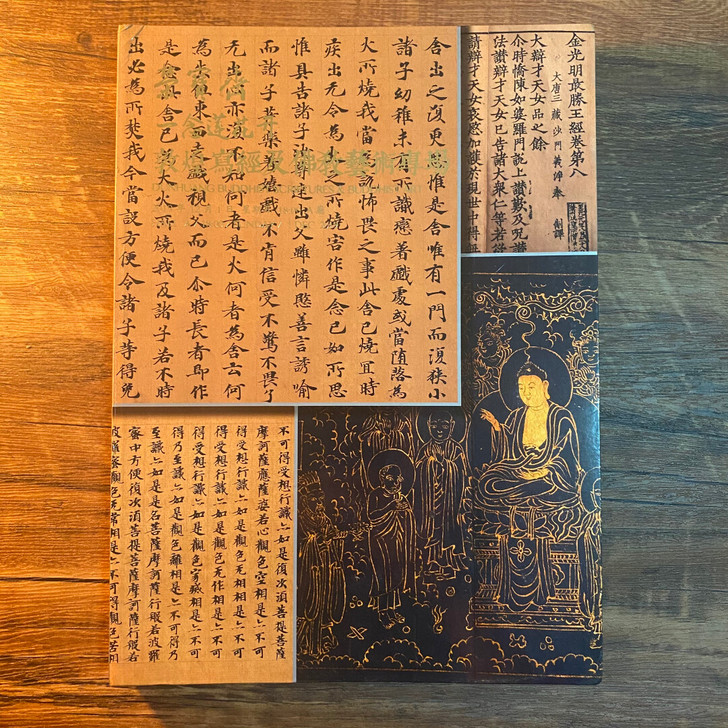 敦煌寫經及佛教藝術專題
DUNHUANG BUDDHIST SCRIPTURES & BUDDHIST ART
金光明最勝王經卷第八
大唐三藏沙門義淨奉 制譯
大辯才天女品之餘
尒時憍陳如婆羅門說上讚歎及呪讚
法讚辯才天女已告諸大衆仁等若欲
請辯才天女哀愍加護於現世中得
舍出之復更思惟是舍唯有一門而復狹小
諸子幼稚未有所識戀著戲處或當墮落為
火所燒我當為說怖畏之事此舍已燒宜時
疾出无令為火之所燒害作是念已如所思
惟具告諸子汝等速出父雖憐愍善言誘喻
而諸子等樂著嬉戲不肯信受不驚不畏了
无出心亦復不知何者是火何者為舍云何
為失但東西走戲視父而已尒時長者即作
是念此舍已為大火所燒我及諸子若不時
出必為所焚我今當設方便令諸子等得免
不可得受想行識亦如是復次須菩提菩薩
摩訶薩應薩婆若心觀色空相是亦不可
得受想行識亦如是觀色无相相是亦不可
得受想行識亦如是觀色无作相是亦不可
得受想行識亦如是觀色寂滅相是亦不可
得乃至識亦如是觀色離相是亦不可得乃
至識亦如是是名菩薩摩訶薩行般若波羅
蜜中方便復次須菩提菩薩摩訶薩行般若
波羅蜜觀色无常相是亦不可得觀色苦相